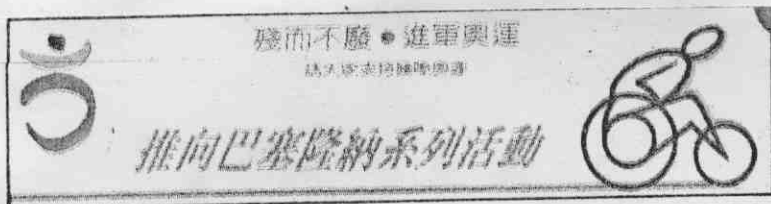 殘而不廢●進軍奧運
請大家支持國際奧運
推向巴塞隆納系列活動